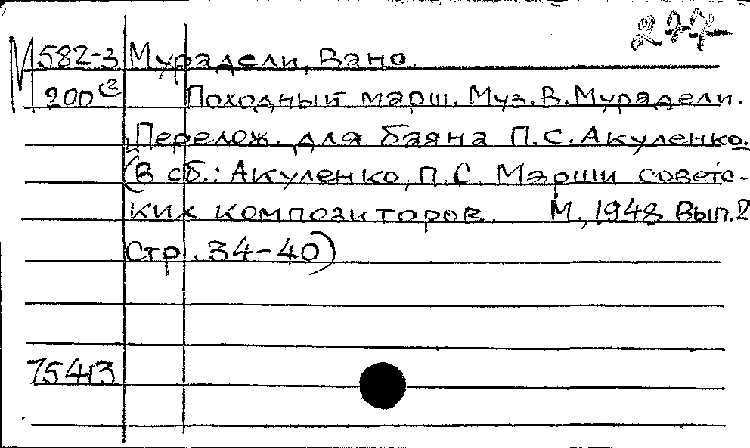 277
М582-3 Мурадели, Вано.
200 Походный марш. Муз. В. Мурадели.
Перелож. для баяна П.С. Акуленко.
(В сб.: Акуленко, П.С. Марши советс-
ких композиторов. М., 1948 Вып. 2
Стр. 34-40)
75413